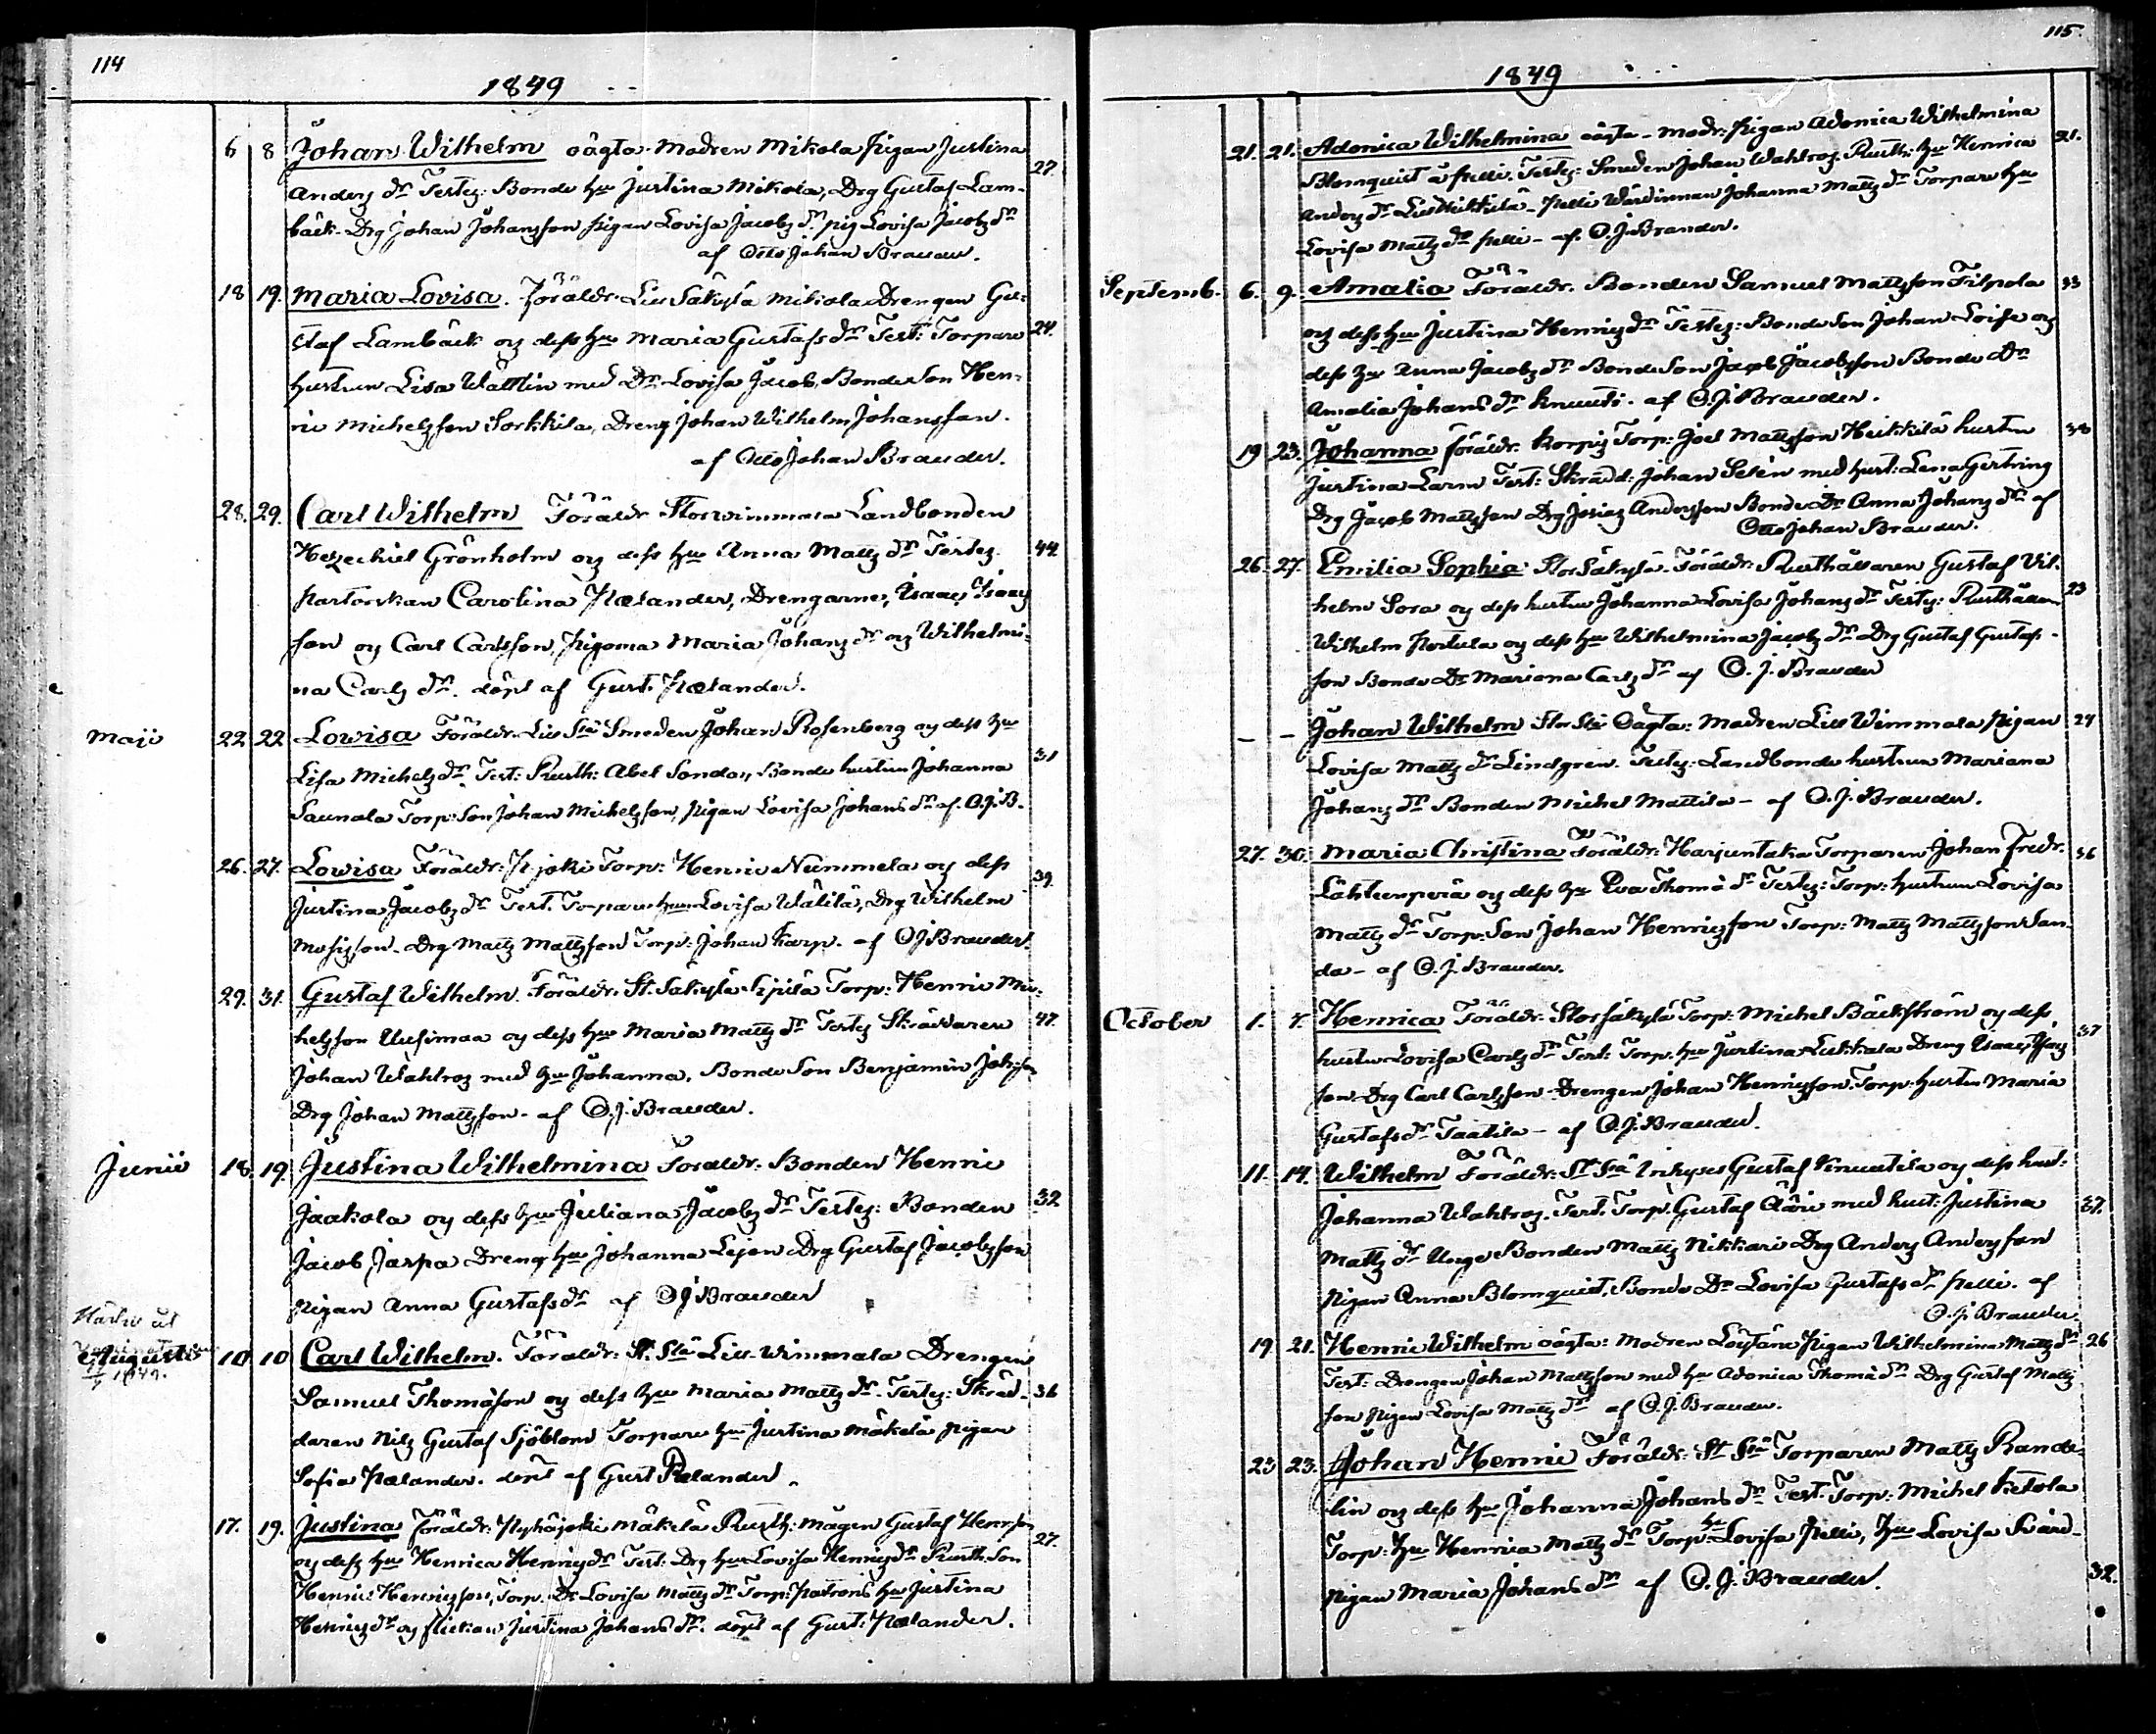 114
1849
6 8 Johan Wilhelm oägta. Modren Mikola Pigan Justina 27.
Anders dr Testes: Bonde hu Justina Mikola, Drg Gustaf Lam-
bäck. Drg Johan Johansson pigan Lovisa Jacobs dr pig Lovisa Jacobs dr
af Otto Johan Brander.
18 19. Maria Lovisa. Föräldr. Lill Säkylä Mikola Drengen Gu-
staf Lambäck og dess hu Maria Gustafs dr Test: Torpare 24.
hustrun Lisa Wättlin med Dr Lovisa Jacob, Bonde Son Hen-
ric Michelsson Sorkkila, Dreng Johan Wilhelm Johansson.
af Otto Johan Brander.
28. 29. Carl Wilhelm Föräldr Storwimmala Landbonden
Hezechiel Grönholm og dess hu Anna Matts dr Testes 44.
Pastorskan Carolina Pælander, Drengarne, Isaac Isacs
son og Carl Carlsson, Pigorna Maria Johans dr og Wilhelmi-
na Carls dr. döpt af Gust. Pælander.
Maji 22 22 Lowisa Föräldr. Lill Slä Smeden Johan Rosenberg og dess hu
Lisa Michels dr. Test: Rusth: Abel Sonda, Bonde hustrun Johanna 31
Saunala Torp: Son Johan Michelsson, Pigan Lovisa Johans dr af. O.J.B.
26. 27. Lowisa Föräldr. Torp: Henric Nummela og dess
Justina Jacobs dr Test. Torpare hu Lovisa Wälilä, Drg Wilhelm 39.
Mosisson. Drg Matts Mattsson Torp: Johan Karp. af O J Brander.
29. 31. Gustaf Wilhelm. Föräldr. St. Säkylä Torp: Henric Mi-
helsson Uusimaa og dess hu Maria Matts dr Testes Skräddaren 47.
Johan Wahlros med hu Johanna. Bonde Son Benjamin Johsson
Drg Johan Mattsson - af O.J. Brander.
Junii 18. 19. Justina Wilhelmina Föräldr: Bonden Henric
Jaakola og dess hu Juliana Jacobs dr Testes: Bonden 32
Jacob Jaspa Dreng hu Johanna Lejon Drg Gustaf Jacobsson
Pigan Anna Gustafs dr af O J Brander
Augusti 10 10 Carl Wilhelm. Föräldr: St. Slä Lill-Wimmala Drengen
Samuel Thomasson og dess hu Maria Matts dr. Testes: Skräd- 36
daren Nils Gustaf Sjöblom Torpare hu Justina Mäkelä pigan
Sofia Pælander. döpt af Gust Pælander.
17. 19. Justina Föräldr: Pyhäjoki Mäkelä Rusth: mågen Gustaf Henrsson 27.
og dess hu Henrica Henrics dr Test: Drg hu Lovisa Henrics dr Rusth. Son
Henric Henricsson, Torp. Dr Lovisa Matts dr Torp: hu Justina
Henrics dr og flickan Justina Johans dr. döpt af Gust: Pælander.
115.
1849
21. 21. Adonica Wilhelmina oägta - Modr: Pigan Adonica Wilhelmina 21.
Blomquist å Pelli. Testes: Smeden Johan Wahlros. Rusth: hu Henrica
Anders dr - Pelli Wärdinnan Johanna Matts dr Torpare hu
Lovisa Matts dr Pelli - af O.J. Brander.
Septemb. 6. 9. Amalia Föräldr. Bonden Samuel Mattsson Filpola 33
og dess hu Justina Henrics dr Testes: Bonde Son Johan og
dess hu Anna Jacobs dr Bonde Son Jacob Jacobsson Bonde Dr
Amalia Johans dr Knuuti. af O.J. Brander.
19 23. Johanna föräldr. Korpis Torp: Joel Mattsson Heikkilä hustru 38
Justina Larm Test: Skrädd: Johan Selén med hust: Lena
Drg Jacob Mattsson Drg Josias Andersson Bonde Dr Anna Johans dr af
Otto Johan Brander.
26. 27. Emilia Sophia StorSäkylä. Föräldr: Rusthållaren Gustaf Vil-
helm Sora og dess hustru Johanna Lovisa Johans dr Testes: Rusthållaren 23
Wilhelm og dess hu Wilhelmina Jacobs dr Drg Gustaf Gustaf-
son Bonde Dr Mariana Carls dr af O. J. Brander
- - Johan Wilhelm Stor Slä Oägta: Modren Lill Wimmala Pigan 24
Lovisa Matts dr Lindgren. Testes: Landbonde hustrun Mariana
Johans dr Bonden Michel Mattila - af O.J. Brander.
27. 30. Maria Christina Föräldr: Harjuntaka Torparen Johan Fredr. 36
Lähteenperä og dess hu Eva Thomä dr Testes: Torp: hustrun Lovisa
Matts dr Torp: Son Johan Henricsson Torp: Matts Mattsson San-
da - af O.J. Brander.
October 1. 7. Henrica Föräldr: Storsäkylä Torp: Michel Bäckström og dess 37
hustru Lovisa Carls dr Test: Torp. hu Justina Dreng Isaac Isacs
son - Drg Carl Carlsson - Drengen Johan Henricsson. Torp: hustru Maria
Gustafs dr Taatila - af O.J. Brander.
11. 14. Wilhelm Föräldr: St Slä Inhyses Gustaf og dess hust:
Johanna Wahlros. Test. Torp. Gustaf med hust: Justina 37.
Matts dr Unge Bonden Matts Nikkari Drg Anders Andersson
Pigan Anna Blomquist, Bonde Dr Lovisa Gustafs dr Pelli. af
O.J. Brander.
19 21. Henric Wilhelm oägta: Modren Löytäne Pigan Wilhelmina Matts dr 26
Test: Drengen Johan Mattsson med hu Adonica Thomä dr Drg Gustaf Matts
son Pigan Lovisa Matts dr af O.J. Brander.
23 23. Johan Henric Föräldr: St Slä Torparen Matts Rande-
lin og dess hu Johanna Johans dr Test. Torp: Michel Ketola
Torp: hu Henrica Matts dr Torp: hu Lovisa Pelli, hu Lovisa Svärd-
Pigan Maria Johans dr af O. J. Brander. 32.